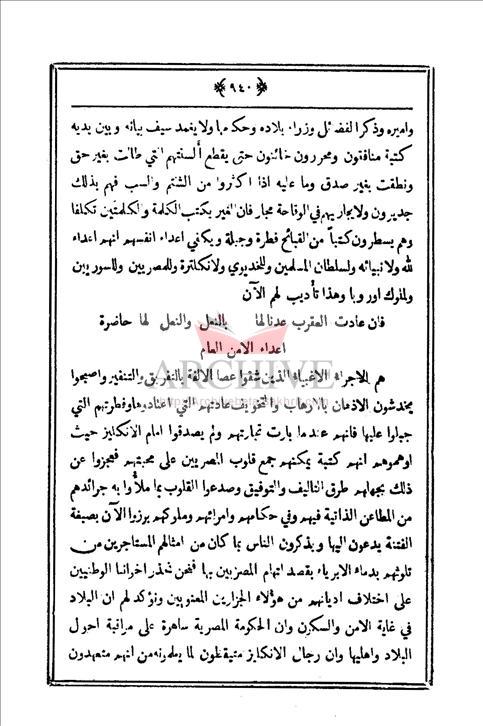 ﴿٩٤٠﴾
واميره وذكرا لفضائل وزراء بلاده وحكامها ولا يغمد سيف بيانه وبين يديه
كتبة منافقون ومحررون خائنون حتى يقطع ألسنتهم التي طالت بغير حق
ونطقت بغير صدق وما عليه اذا اكثروا من الشتم والسب فهم بذلك
جديرون ولا يجاريهم في الوقاحة مجار فان الغير يكتب الكلمة والكلمتين تكلفا
وهم يسطرون كتباً من القبائح فطرة وجبلة ويكفي اعداء انفسهم انهم اعداء
لله ولانبيائه ولسلطان المسلمين وللخديوي ولانكلترة وللمصريين وللسوريين
ولملوك اوروبا وهذا تأديب لهم الآن
فان عادت العقرب عدنا لها بالنعل والنعل لها حاضرة
اعداء الامن العام
ARCHIVE
هم الاجراء الاغبياء الذين شقوا عصا الالفة بالتفريق والتنفير واصبحوا
يخدشون الاذهان بالارهاب والتخويف عادتهم التي اعتادوها وفطرتهم التي
جبلوا عليها فانهم عندما بارت تجارتهم ولم يصدقوا امام الانكليز حيث
اوهموهم انهم كتبة يمكنهم جمع قلوب المصريين على محبتهم فعجزوا عن
ذلك بجهلهم طرق التاليف والتوفيق وصدعوا القلوب بما ملأوا به جرائدهم
من المطاعن الذاتية فيهم وفي حكامهم وامرائهم وملوكهم برزوا الآن بصيغة
الفتنة يدعون اليها ويذكرون الناس بما كان من امثالهم المستاجرين من
تلوثهم بدماء الابرياء بقصد اتهام المصريين بها فنحن نحذر اخواننا الوطنيين
على اختلاف اديانهم من هؤلاء الجزارين المعنويين ونؤكد لهم ان البلاد
في غاية الامن والسكون وان الحكومة المصرية ساهرة على مراقبة احوال
البلاد واهليها وان رجال الانكليز متيقظون لما يعلمونه من انهم متعهدون